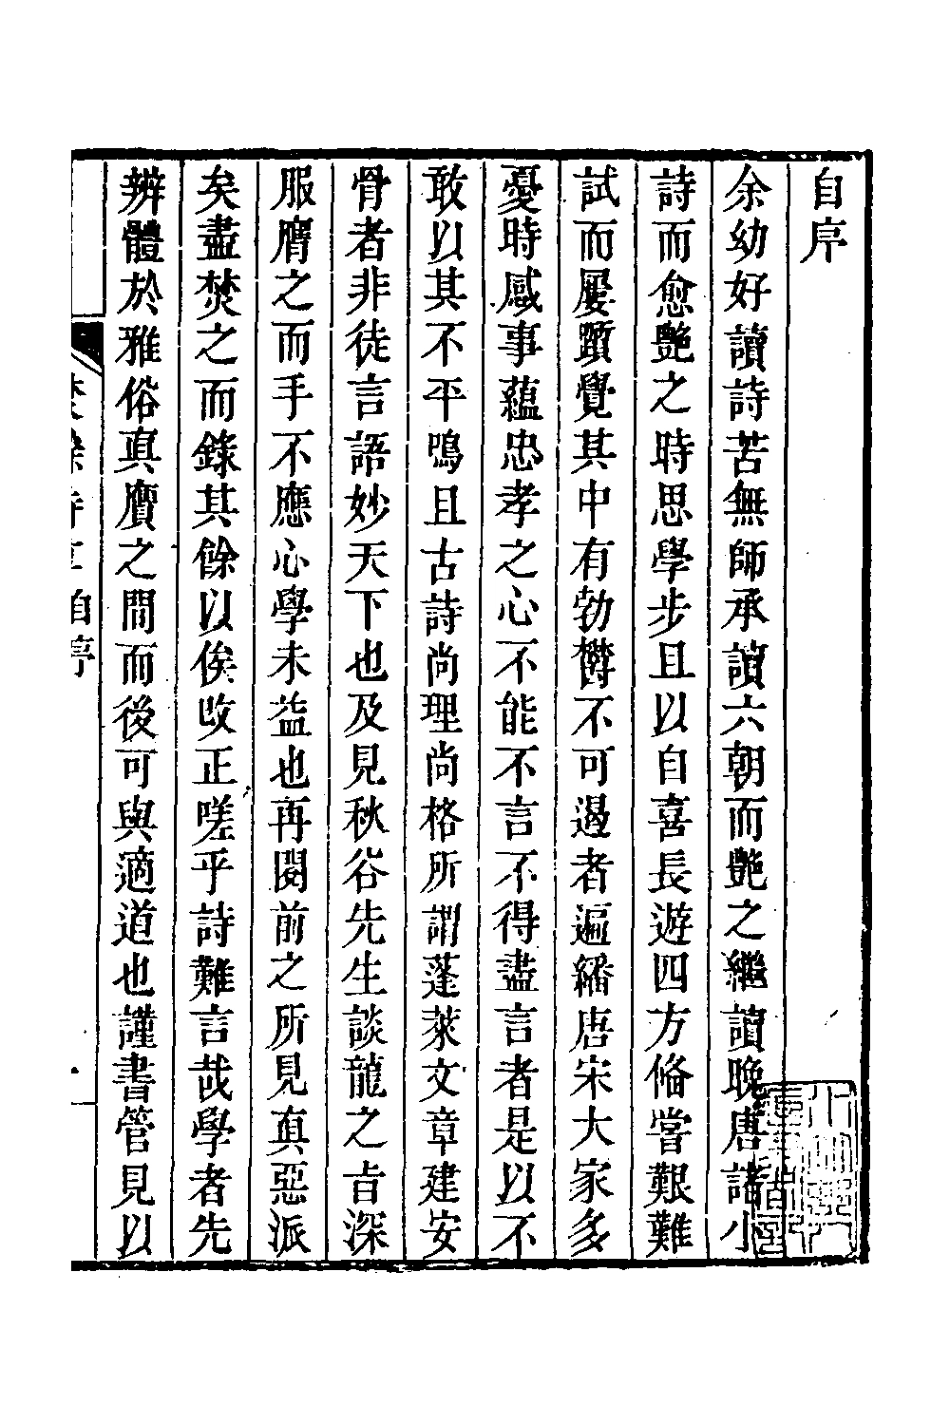 自序
余幼好讀詩苦無師承讀六朝而艷之繼讀晚唐諸小
詩而愈艷之時思學步且以自喜長遊四方偹嘗艱難
試而屢躓覺其中有勃欝不可遏者遍繙唐宋大家多
憂時感事蘊忠孝之心不能不言不得盡言者是以不
敢以其不平鳴且古詩尚理尚格所謂蓬萊文章建安
骨者非徒言語妙天下也及見秋谷先生談龍之旨深
服膺之而手不應心學未益也再閱前之所見真惡派
矣盡焚之而錄其餘以俟攺正嗟乎詩難言哉學者先
辨體於雅俗真贗之間而後可與適道也謹書管見以
自序
一